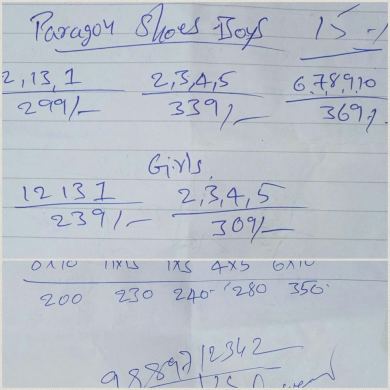 Paragon Shoes Boys 15 ./.
2,13,1 2,3,4,5 6,7,8,9,10
299/- 339/- 369/.
Girls
12 13 1 2,3,4,5
239/- 309/-
6x10 11x13 1x3 4x5 6x10
200 230 240 280 350